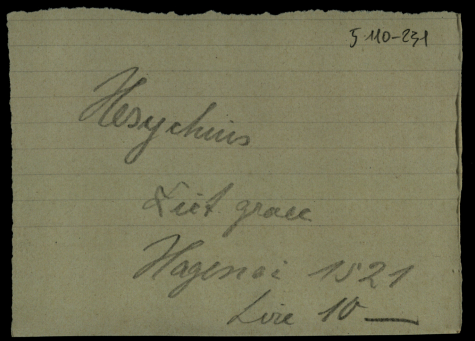 5 110-231
Hesychius
Dict graec
Hagenoi 1521
Lire 10 —